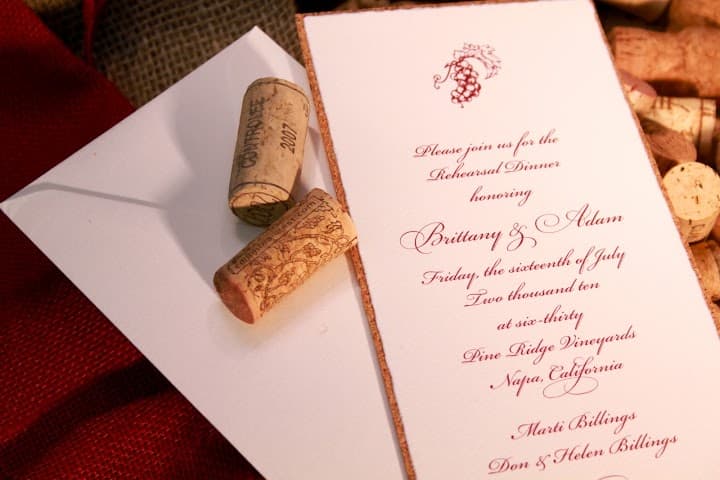 Please join us for the
Rehearsal Dinner
honoring
Brittany & Adam
Friday, the sixteenth of July
Two thousand ten
at six-thirty
Pine Ridge Vineyards
Napa, California
Marti Billings
Don & Helen Billings
2007